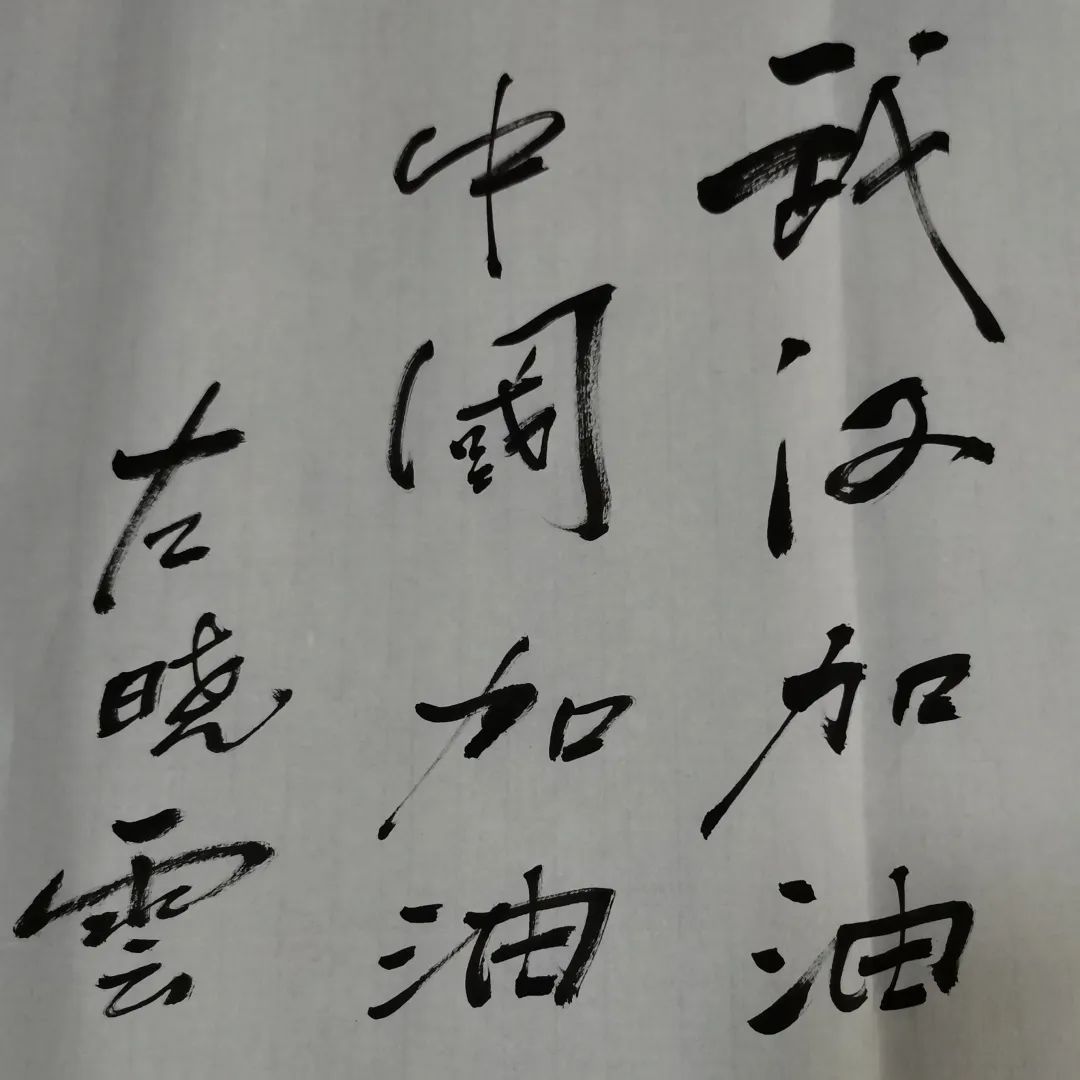 武汉加油
中國加油
左晓雲